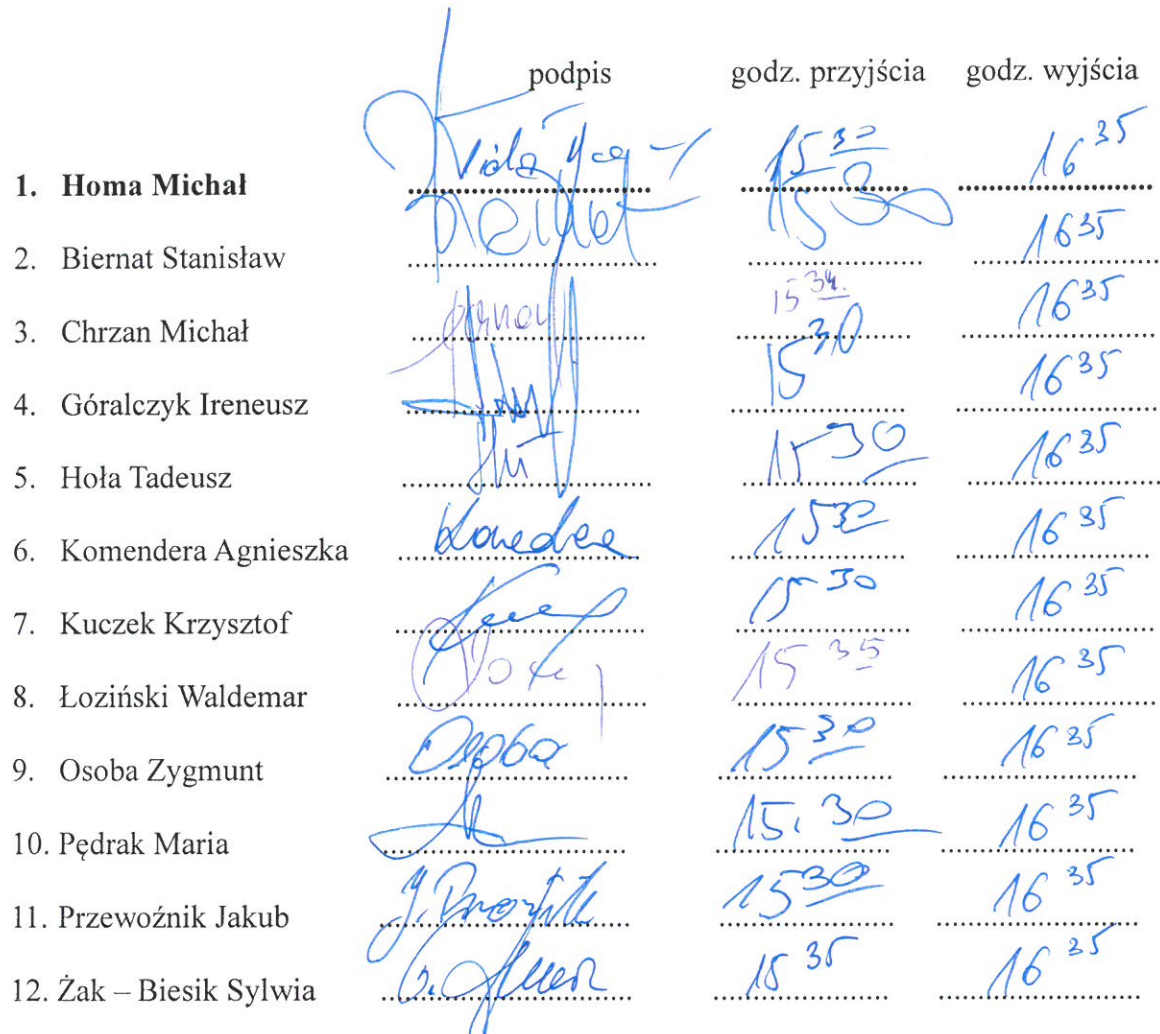 podpis godz. przyjścia godz. wyjścia
1. Homa Michał 15 30 16 35
2. Biernat Stanisław 15 30 16 35
3. Chrzan Michał 15 34. 16 35
4. Góralczyk Ireneusz 15 30 16 35
5. Hoła Tadeusz 15 30 16 35
6. Komendera Agnieszka 15 30 16 35
7. Kuczek Krzysztof 15 30 16 35
8. Łoziński Waldemar 15 35 16 35
9. Osoba Zygmunt Osoba 15 30 16 35
10. Pędrak Maria 15.30 16 35
11. Przewoźnik Jakub 15 30 16 35
12. Żak – Biesik Sylwia 15 35 16 35